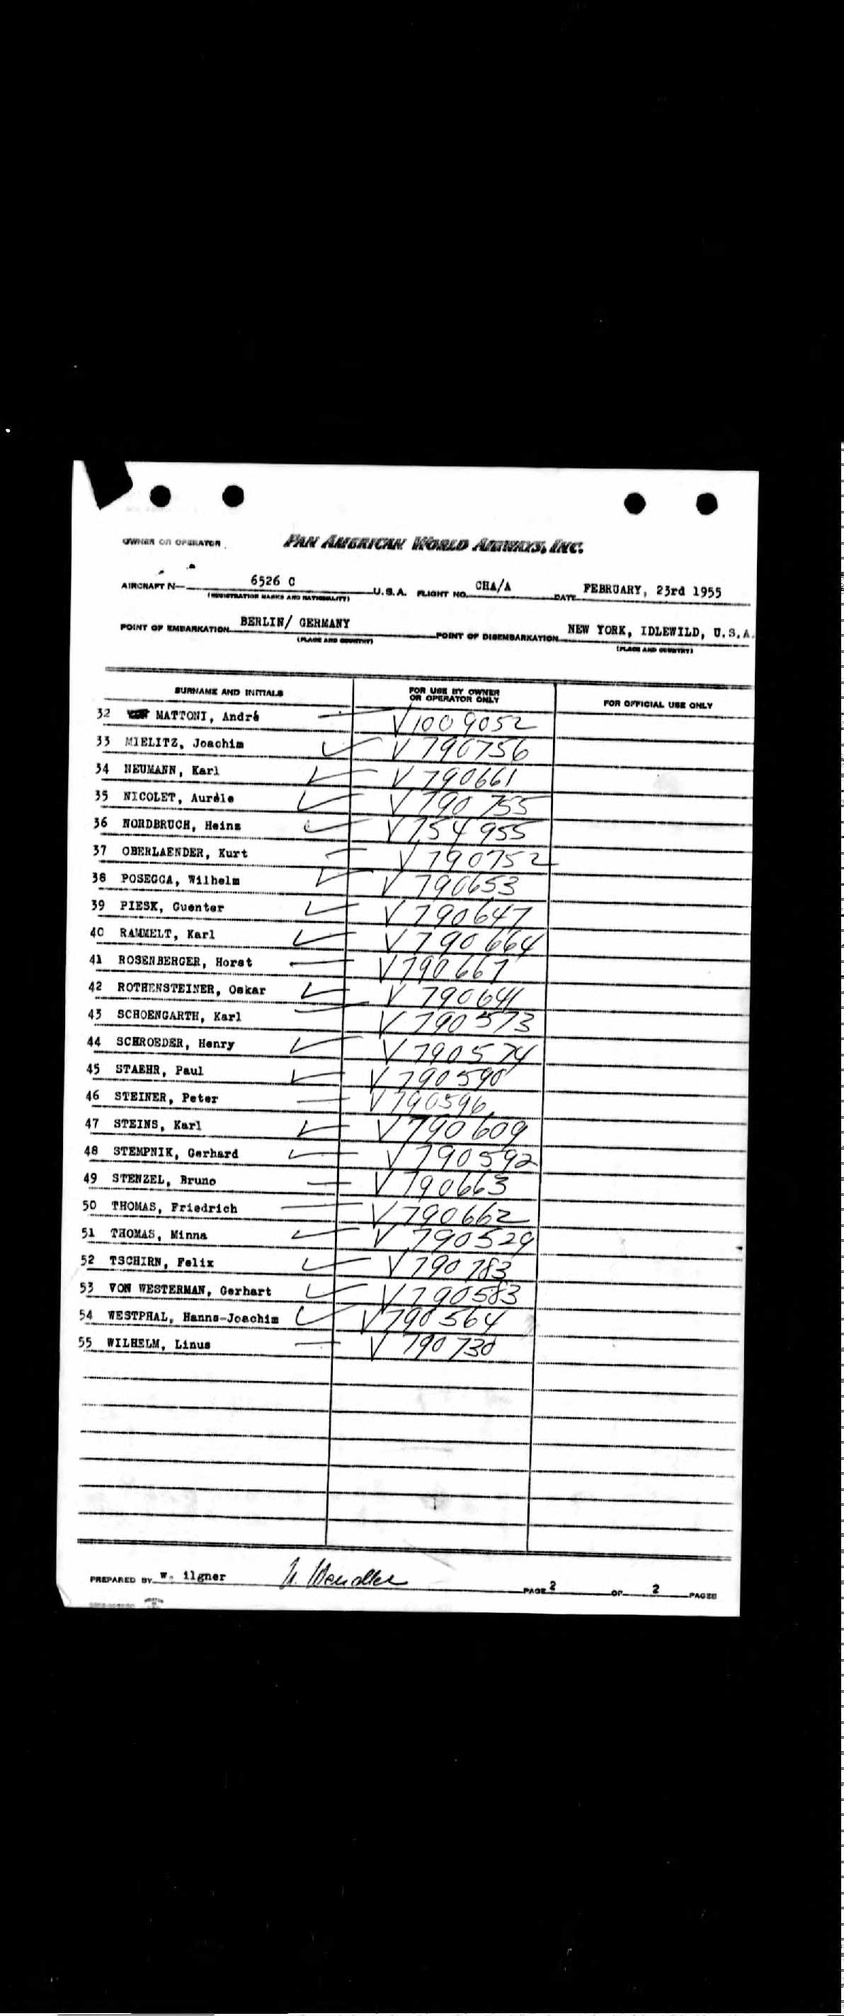 OWNER OR OPERATOR PAN AMERICAN WORLD AIRWAYS, INC.
AIRCRAFT N— 6526 C U.S.A. FLIGHT NO. CHA/A DATE FEBRUARY, 23rd 1955
(REGISTRATION MARKS AND NATIONALITY)
POINT OF EMBARKATION BERLIN/ GERMANY POINT OF DISEMBARKATION NEW YORK, IDLEWILD, U.S.A.
(PLACE AND COUNTRY) (PLACE AND COUNTRY)
SURNAME AND INITIALS FOR USE BY OWNER OR OPERATOR ONLY FOR OFFICIAL USE ONLY
32 MATTONI, André V1009052
33 MIELITZ, Joachim V 790756
34 NEUMANN, Karl V 790661
35 NICOLET, Auréle V 790755
36 NORDBRUCH, Heinz V 754955
37 OBERLAENDER, Kurt V 790752
38 POSEGGA, Wilhelm V 790653
39 PIESK, Guenter V 790647
40 RAMMELT, Karl V 790664
41 ROSENBERGER, Horst V 790667
42 ROTHENSTEINER, Oskar V 790641
43 SCHOENGARTH, Karl V 790573
44 SCHROEDER, Henry V 790574
45 STAEHR, Paul V 790590
46 STEINER, Peter V 790596
47 STEINS, Karl V 790609
48 STEMPNIK, Gerhard V 790592
49 STENZEL, Bruno V 790663
50 THOMAS, Friedrich V 790662
51 THOMAS, Minna V 790529
52 TSCHIRN, Felix V 790783
53 VON WESTERMAN, Gerhart V 790583
54 WESTPHAL, Hanns-Joachim V 790564
55 WILHELM, Linus V 790730
PREPARED BY W. ilgner PAGE 2 OF 2 PAGES